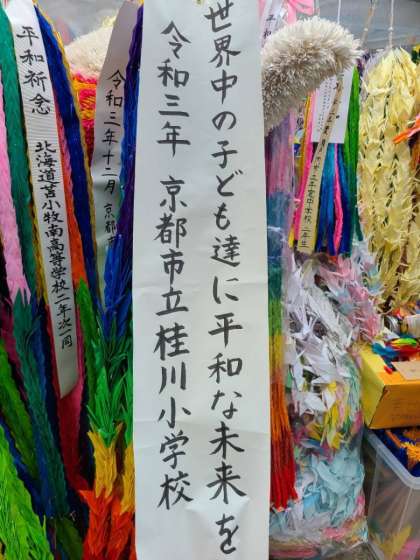 世界中の子ども達に平和な未来を
令和三年 京都市立桂川小学校
令和三年十二月 京都市
平和祈念
北海道苫小牧南高等学校二年次一同